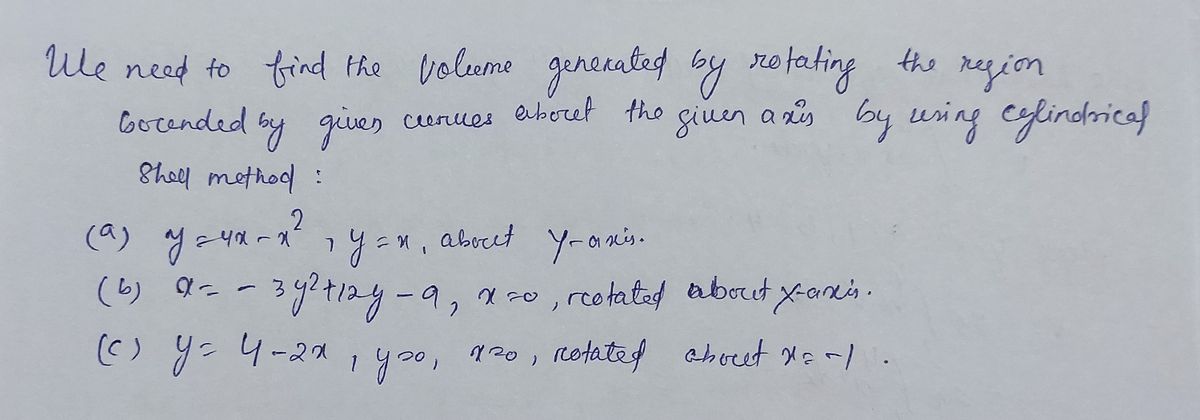 We need to find the volume generated by rotating the region
bounded by given curves about the given axis by using cylindrical
Shell method :
(a) y = 4x - x², y = x, about y-axis.
(b) x = - 3y² + 12y - 9, x = 0, rotated about x-axis.
(c) y = 4 - 2x, y = 0, x = 0, rotated about x = -1.